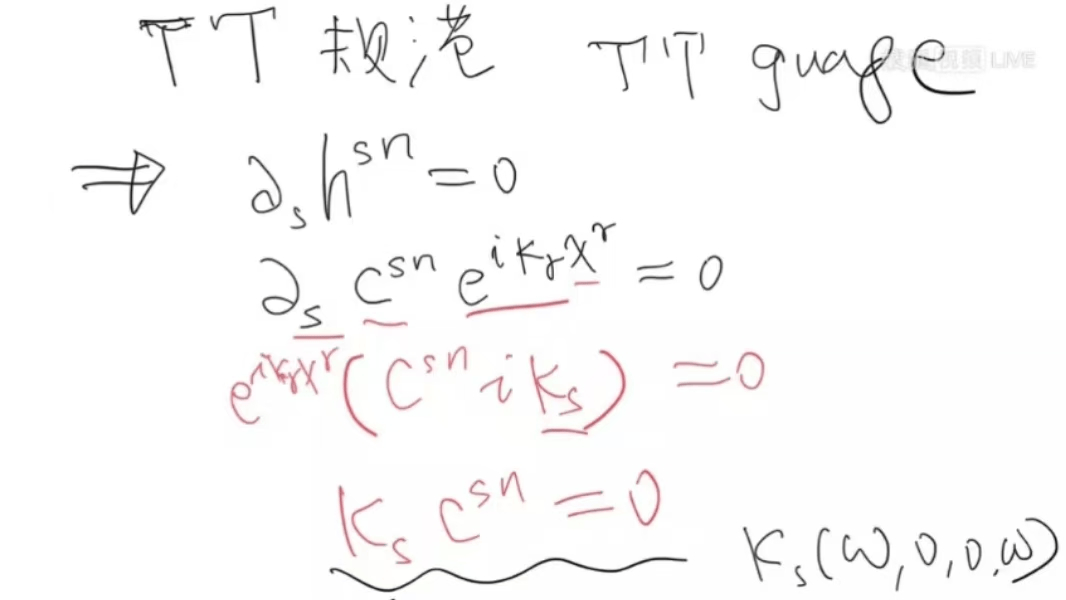 TT 规范 TT guage
LIVE
⇒ ∂ₛhˢⁿ = 0
∂ₛ Cˢⁿ e^{i kᵣ xʳ} = 0
e^{i kᵣ xʳ}(Cˢⁿ i kₛ) = 0
Kₛ Cˢⁿ = 0
Kₛ(ω, 0, 0, ω)